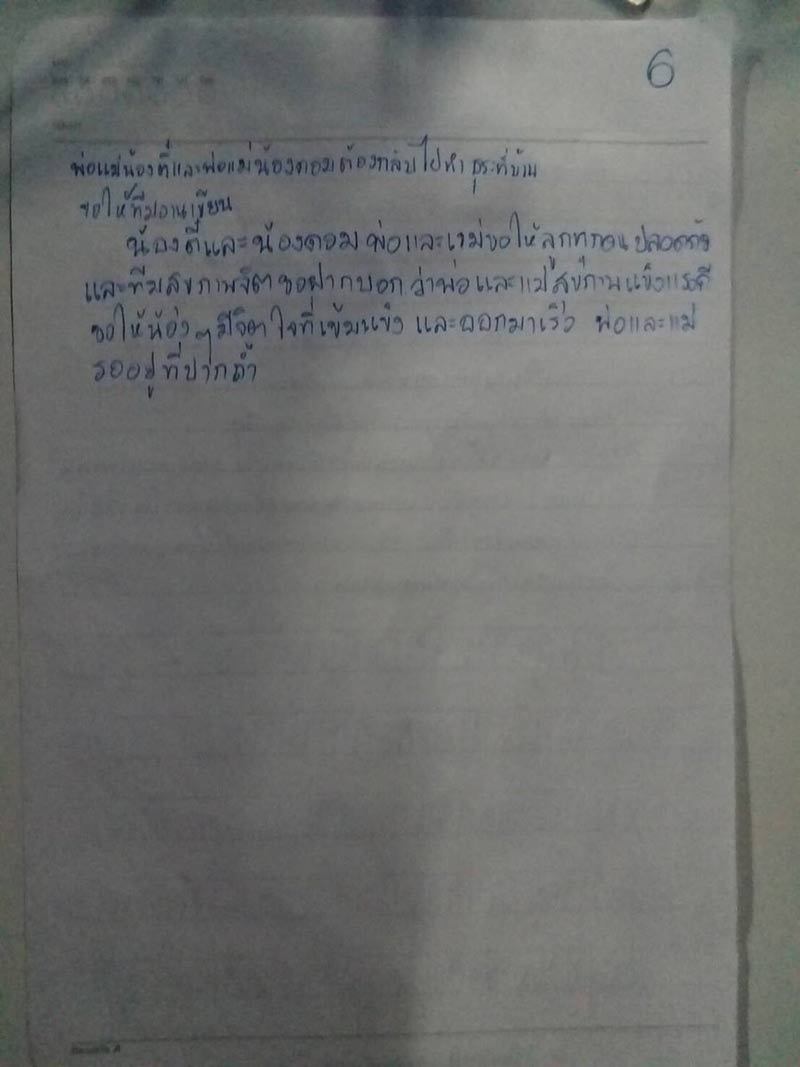 6
พ่อแม่น้องตี๋และพ่อแม่น้องดอมต้องกลับไปทำธุระที่บ้าน
ขอให้ทีมงานเขียน
น้องตี๋และน้องดอม พ่อและแม่ขอให้ลูกทุกคนปลอดภัย
และทีมสุขภาพจิตขอฝากบอกว่าพ่อและแม่สุขภาพแข็งแรงดี
ขอให้น้อง ๆ มีจิตใจที่เข้มแข็ง และออกมาเร็ว พ่อและแม่
รออยู่ที่ปากถ้ำ